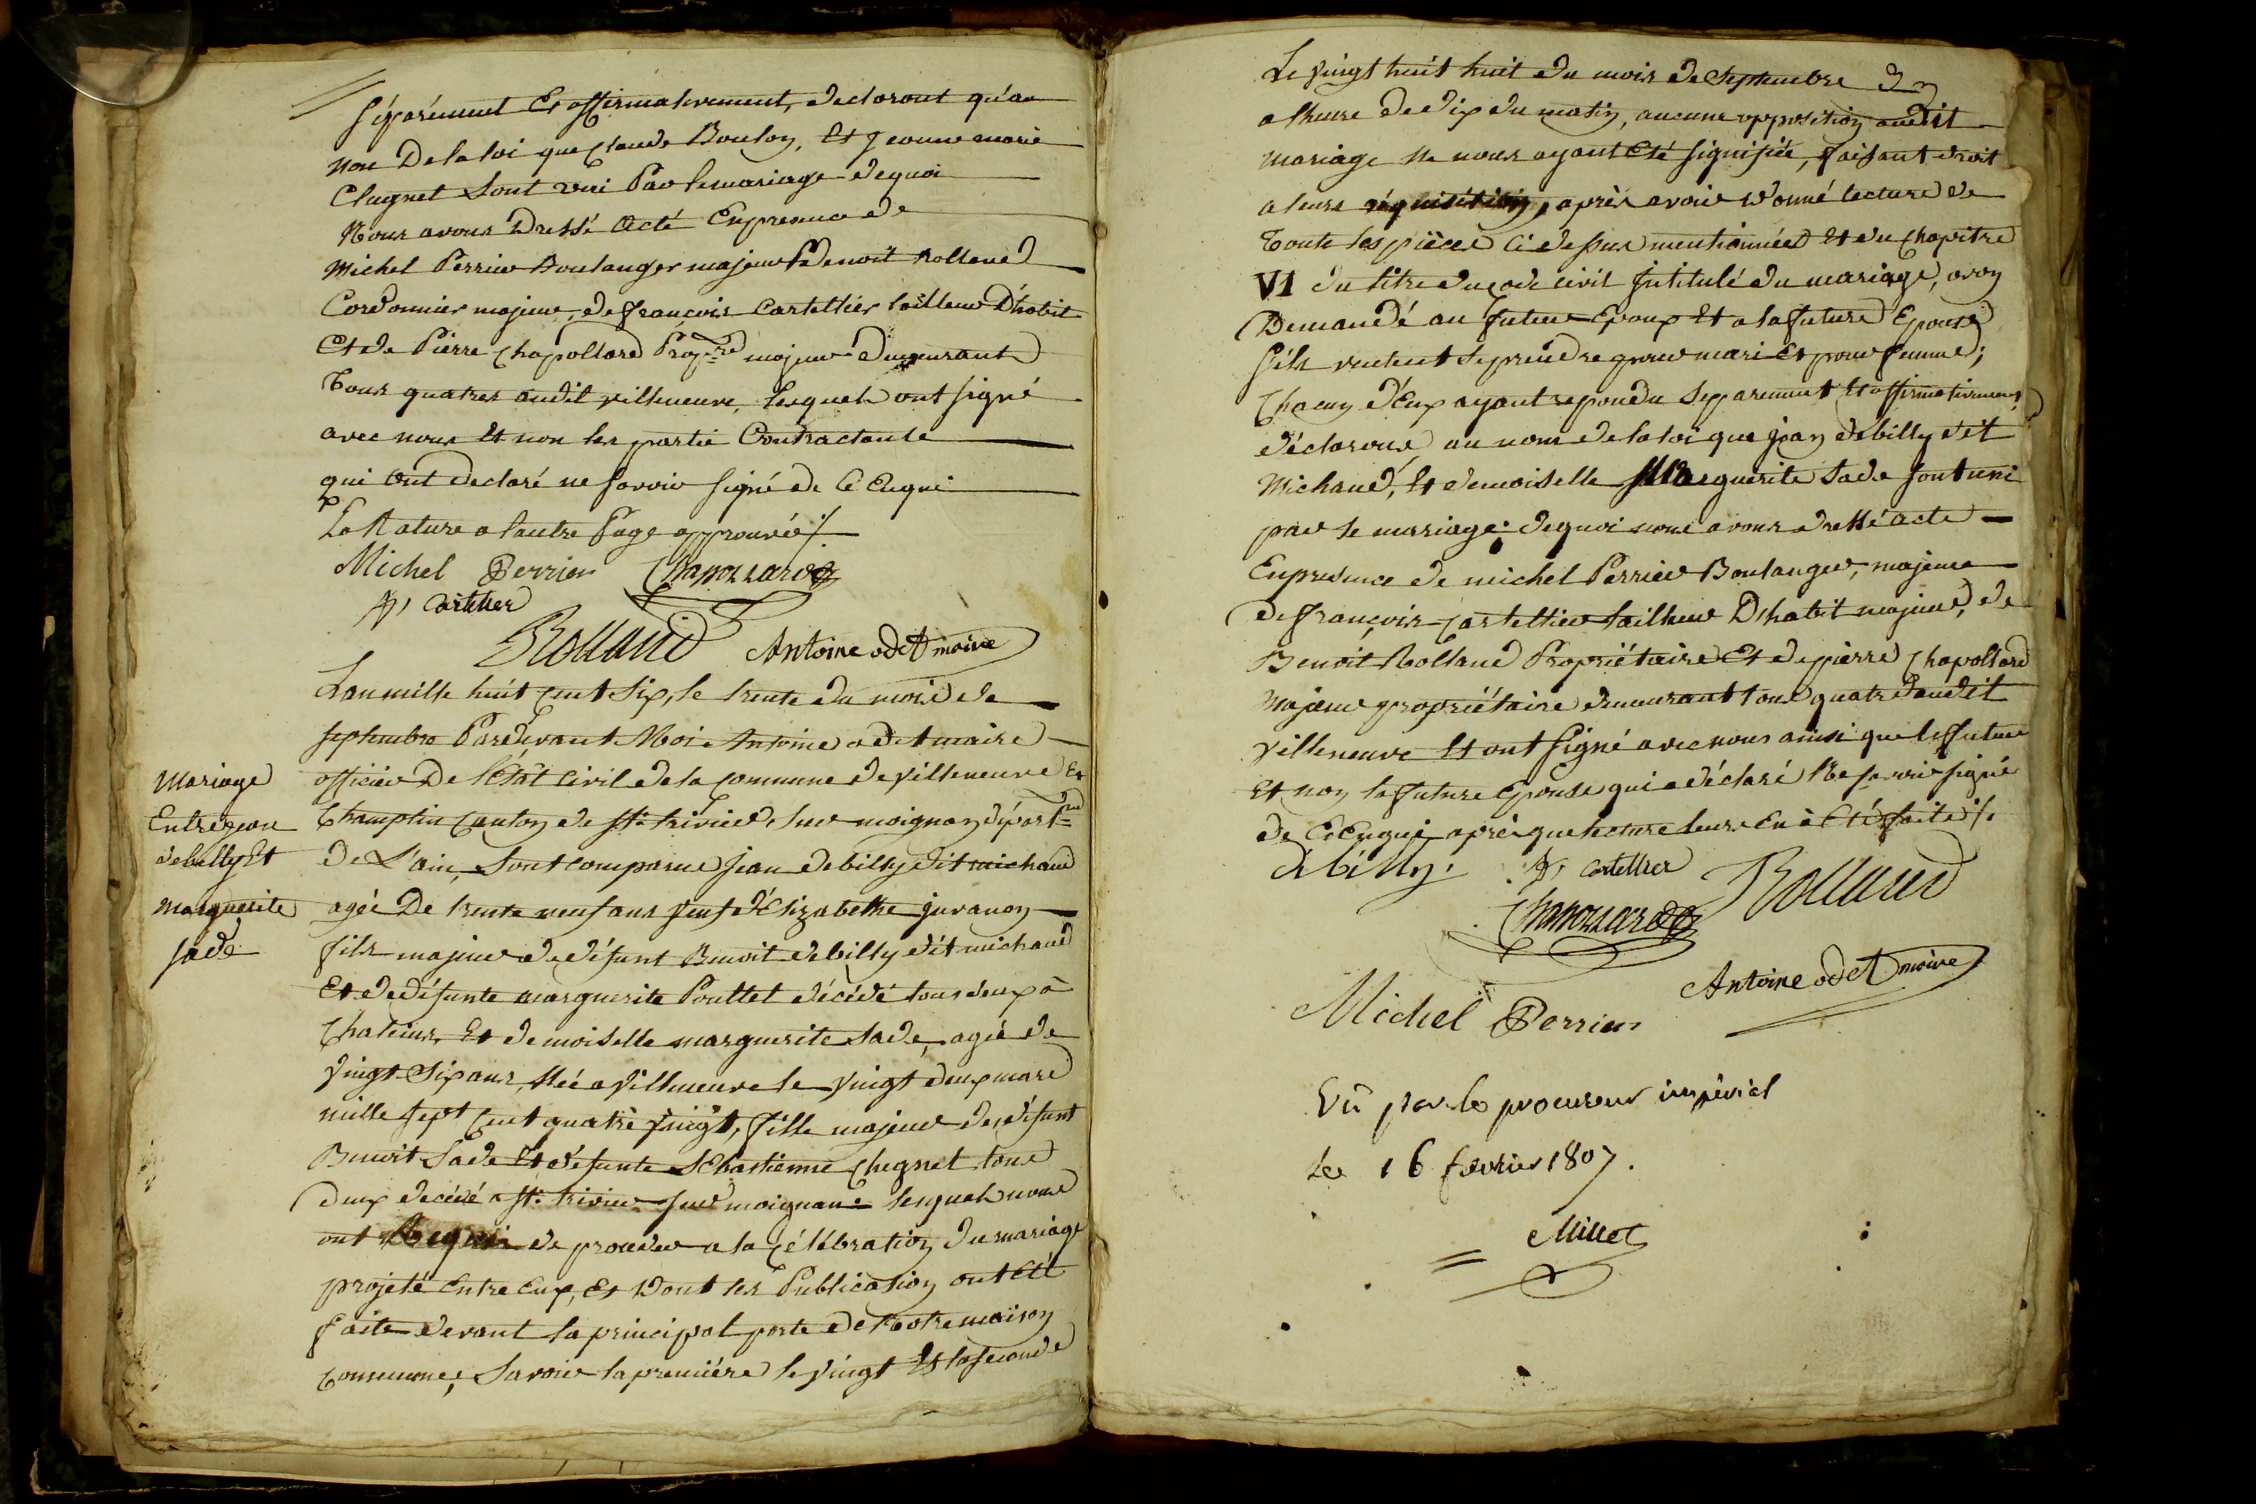 séparément Et affirmativement, declarons qu'au
non De la loi que Claude Boulon, Et Jeanne marie
Clugnet Sont uni Par le mariage dequoi
Nous avons Dressé Acte En presence de
Michel Perrier Boulanger majeur Benoit Rolland
Cordonnier majeur, de françois Cartellier tailleur D'habit
Et de Pierre Chapollard Prop.re majeur demeurant
Tous quatres audit villeneuve, lesquels ont signé
avec nous Et non les partie Contractante
qui Ont declaré ne savoir signé de Ce Enqui
La Rature a l'autre Page approuvée /.
Michel Perrier Chapollard
fs Cartellier
BRolland Antoine odet maire
Mariage
Entre jean
debilly Et
marguerite
sade
L'an mille huit Cent Six, le trente du mois de
septembre Pardevant Moi Antoine odet maire
officier De l'État Civil de la Commune de villeneuve Et
Champtin Canton de St. trivier Sur moignan départ.nt
de L'ain, Sont comparue jean debilly dit michaud
agée De trente neuf ans veuf d'Elizabethe juvanon
fils majeur de défunt Benoit debilly dit michaud
Et de défunte marguerite Poullet décédé tous deux à
Chateins, Et demoiselle marguerite Sade, agée de
vingt Six ans, Née a villeneuve le vingt deux mars
mille sept Cent quatre vingt, fille majeur de défunt
Benoit Sade Et défunte Sébastienne Clugnet tous
deux decédé a St. trivier sur moignans lesquels nous
ont Requis de proceder a la Célébration du mariage
projeté Entre Eux, Et Dont les Publication ont Eté
faite devant la principal porte de Notre maison
Commune, Savoir la premiére le vingt Et la seconde
Le vingt huit huit du mois de Septembre
a lheure de dix du matin, aucune opposition audit
mariage Ne nous ayant Eté signifiée, faisant droit
a leurs réquisition, après avoir donné lecture de
Toute les pièces Ci dessus mentionnées Et du Chapitre
VI du titre du Code Civil Intitulé du mariage, avon
Demandé au futur Epoux Et a la future Epouse
s'ils veulent se prendre pour mari Et pour femme;
Chacun d'Eux ayant repondu Separement Et affirmativement,
déclarons au nom de la loi que jean debilly dit
Michaud, Et demoiselle Marguerite Sade sont uni
par le mariage; dequoi nous avons dressé acte
En presence de michel Perrier Boulanger, majeur
de françois Cartellier tailleur D'habit majeur, de
Benoit Rolland Propriétaire Et de pierre Chapollard
majeur propriétaire demeurant tous quatre audit
villeneuve Et ont signé avec nous ainsi que le futur
Et non la future Epouse qui a déclaré Ne savoir signé
de Ce Enquis après que lecture leurs En à Eté faite /.
debilly. fs Cartellier BRolland
Chapollard
Michel Perrier Antoine odet maire
Vû par le procureur impérial
Le 16 fevrier 1807.
Millet